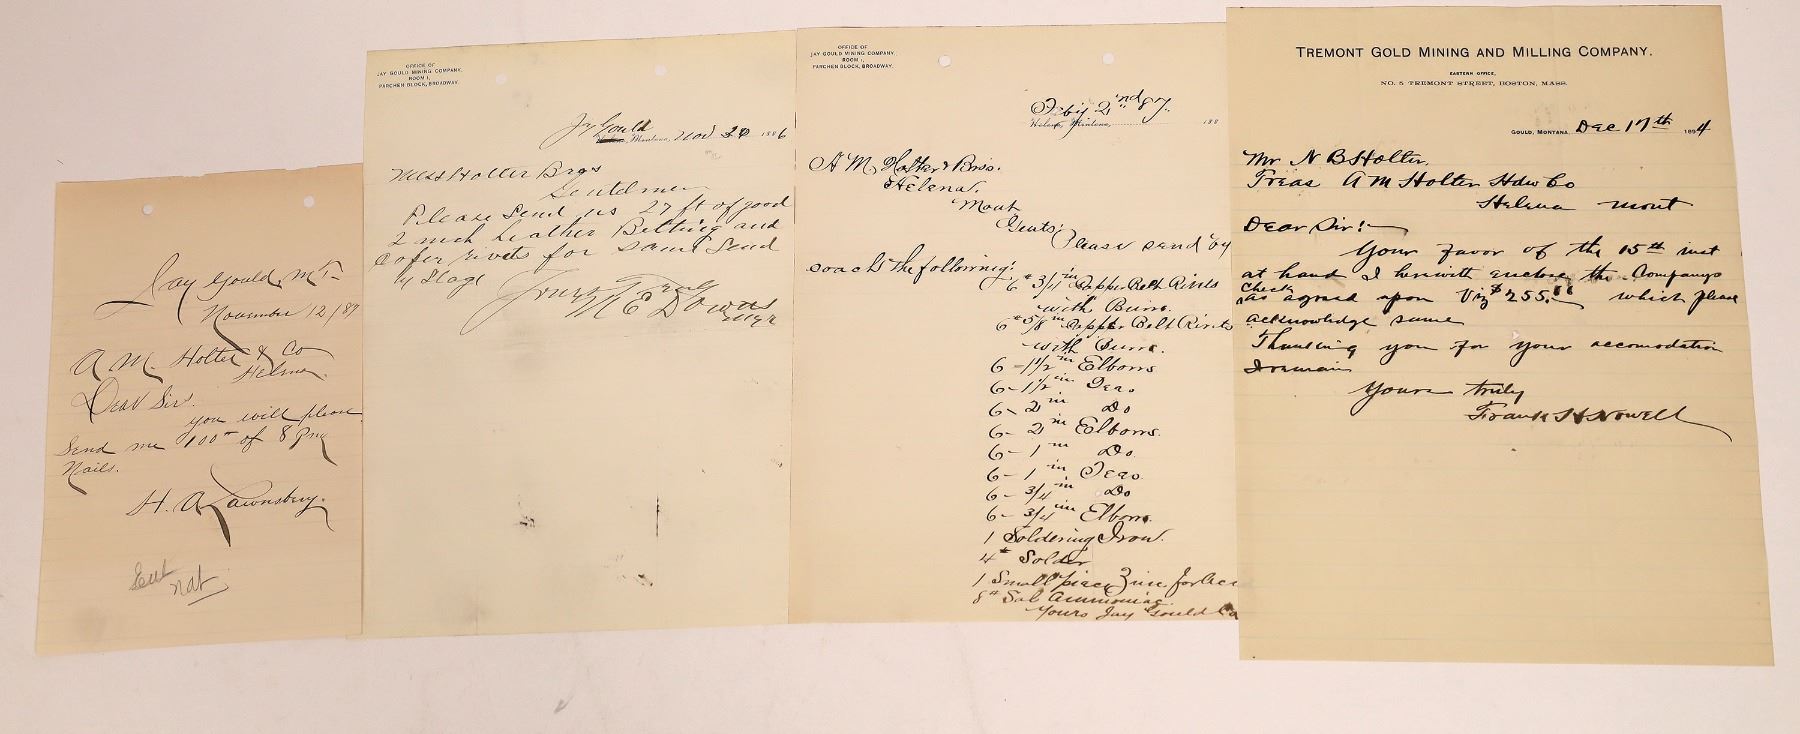 Jay Gould, M.T.
November 12/87
A. M. Holter & Co
Helena.
Dear Sir.
you will please
Send me 100# of 8 Pny
Nails.
H. A. Lawnsbury.
OFFICE OF
JAY GOULD MINING COMPANY,
ROOM 1,
PARCHEN BLOCK, BROADWAY.
Jy Gould
Helena, Montana, Nov 1886
Mess Holter Bros
Gentelmen
Please Send us 27 ft of good
2 inch Leather Belting and
Coper rivets for same Send
by Stage
Yours Truly
M E Downs
Mgr
OFFICE OF
JAY GOULD MINING COMPANY,
ROOM 1,
PARCHEN BLOCK, BROADWAY.
Feby 2nd 87.
Helena, Montana, 188
A M. Holter & Bros.
Helena.
Mont
Gents:
Please send by
coach the following:
6# 3/4 in Copper Belt Rivets
with Burrs.
6# 5/8 in Copper Belt Rivets
with Burrs.
6 - 1 1/2 in Elbows
6 - 1 1/2 in Tees
6 - 2 in Do
6 - 2 in Elbows.
6 - 1 in Do.
6 - 1 in Tees.
6 - 3/4 in Do
6 - 3/4 in Elbows.
1 Soldering Iron.
4# Solder
1 Small piece Zinc for
8# Sal Ammoniac
Yours Jay Gould Co
TREMONT GOLD MINING AND MILLING COMPANY.
EASTERN OFFICE,
NO. 5 TREMONT STREET, BOSTON, MASS.
GOULD, MONTANA, Dec 17th 1894
Mr N B Holter.
Treas A M Holter Hdw Co
Helena Mont
Dear Sir:-
Your favor of the 15th inst
at hand I herewith enclose the Companys
check
as agreed upon Viz $255. which please
acknowledge same
Thanking you for your accomodation
I remain
Yours truly
Frank H Nowell